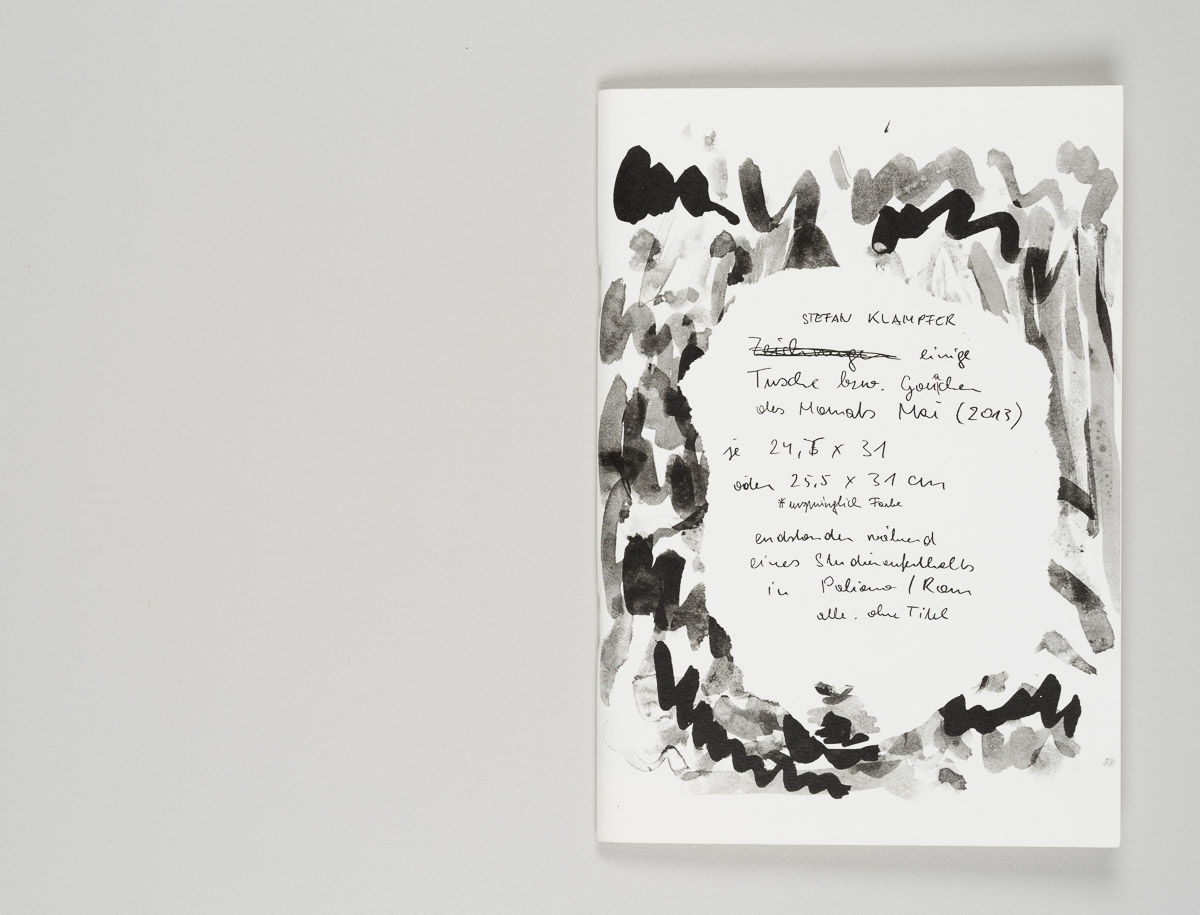 STEFAN KLAMPFER
Zeichnungen einige
Tusche bzw. Gouachen
des Monats Mai (2013)
je 24,5 x 31
oder 25,5 x 31 cm
*ursprünglich Farbe
endstanden während
eines Studienaufenthalts
in Paliano / Rom
alle: ohne Titel